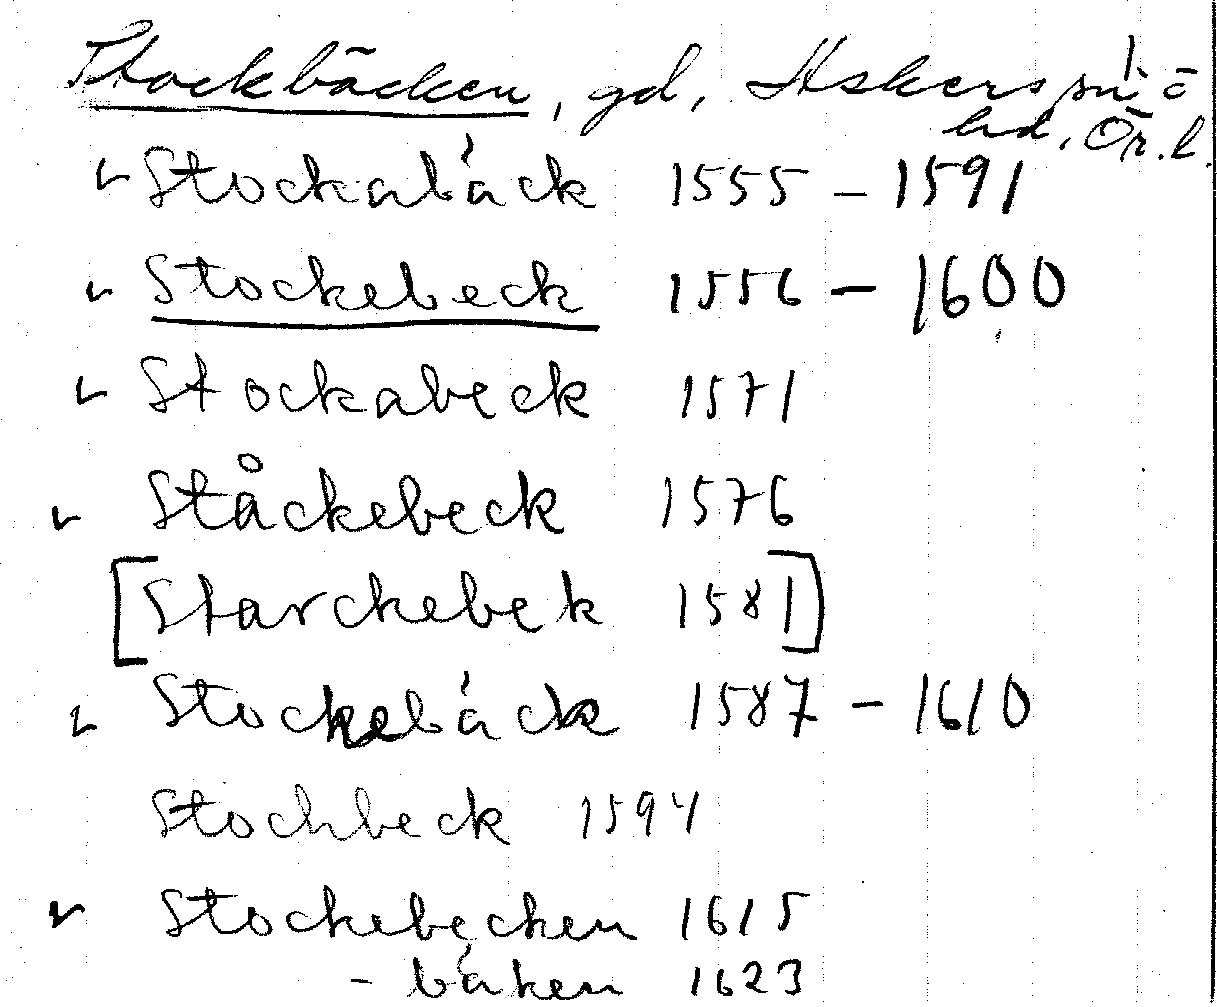 Stockbäcken, gd, Askers sn o
hd, Ör. l.
Stockabäck 1555 – 1591
Stockebeck 1556 – 1600
Stockabeck 1571
Ståckebeck 1576
[Starckebek 1581]
Stockebäck 1587 – 1610
Stochbeck 1594
Stockebecken 1615
- bäken 1623